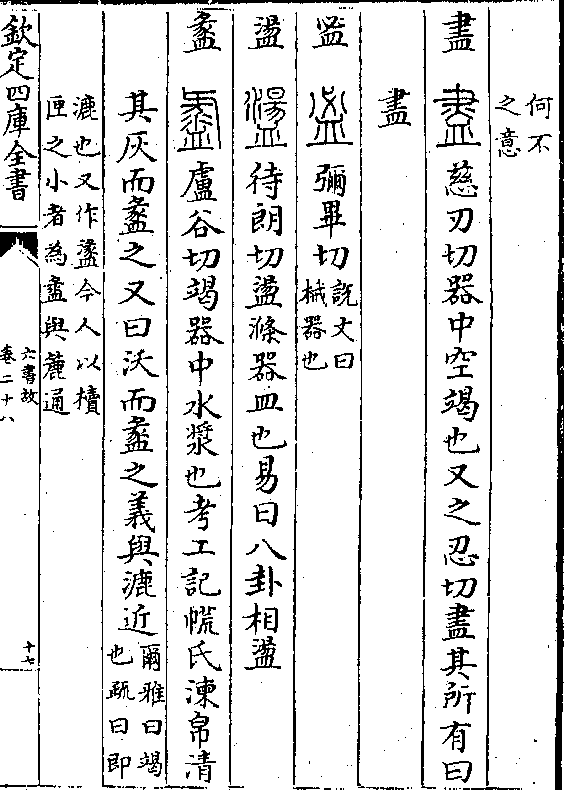 何不
之意
盡 慈刃切器中空竭也又之忍切盡其所有曰
盡
𥁑 彌畢切
說文曰
械器也
盪 待朗切盪滌器皿也易曰八卦相盪
盝 盧谷切竭器中水漿也考工記㡛氏湅帛清
其灰而盝之又曰沃而盝之義與漉近
爾雅曰竭
也疏曰即
漉也又作今人以櫝
匣之小者為盝與簏通
欽定四庫全書
六書故
卷二十八
十七